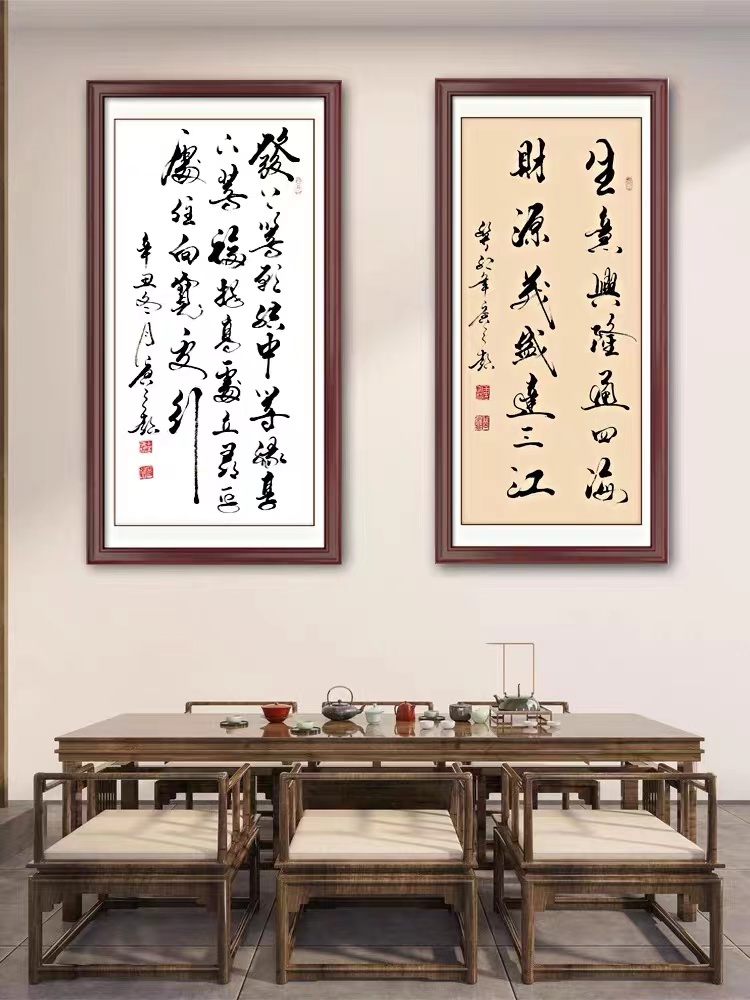 發上等願結中等緣享
下等福擇高處立尋平
處住向寬處行
辛丑冬月
生意興隆通四海
財源茂盛達三江
癸卯年